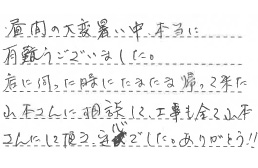 昼間の大変暑い中、本当に
有難うございました。
店に伺った時にたまたま帰って来た
山本さんに相談して、工事も全て山本
さんにして頂き、安心でした。ありがとう!!